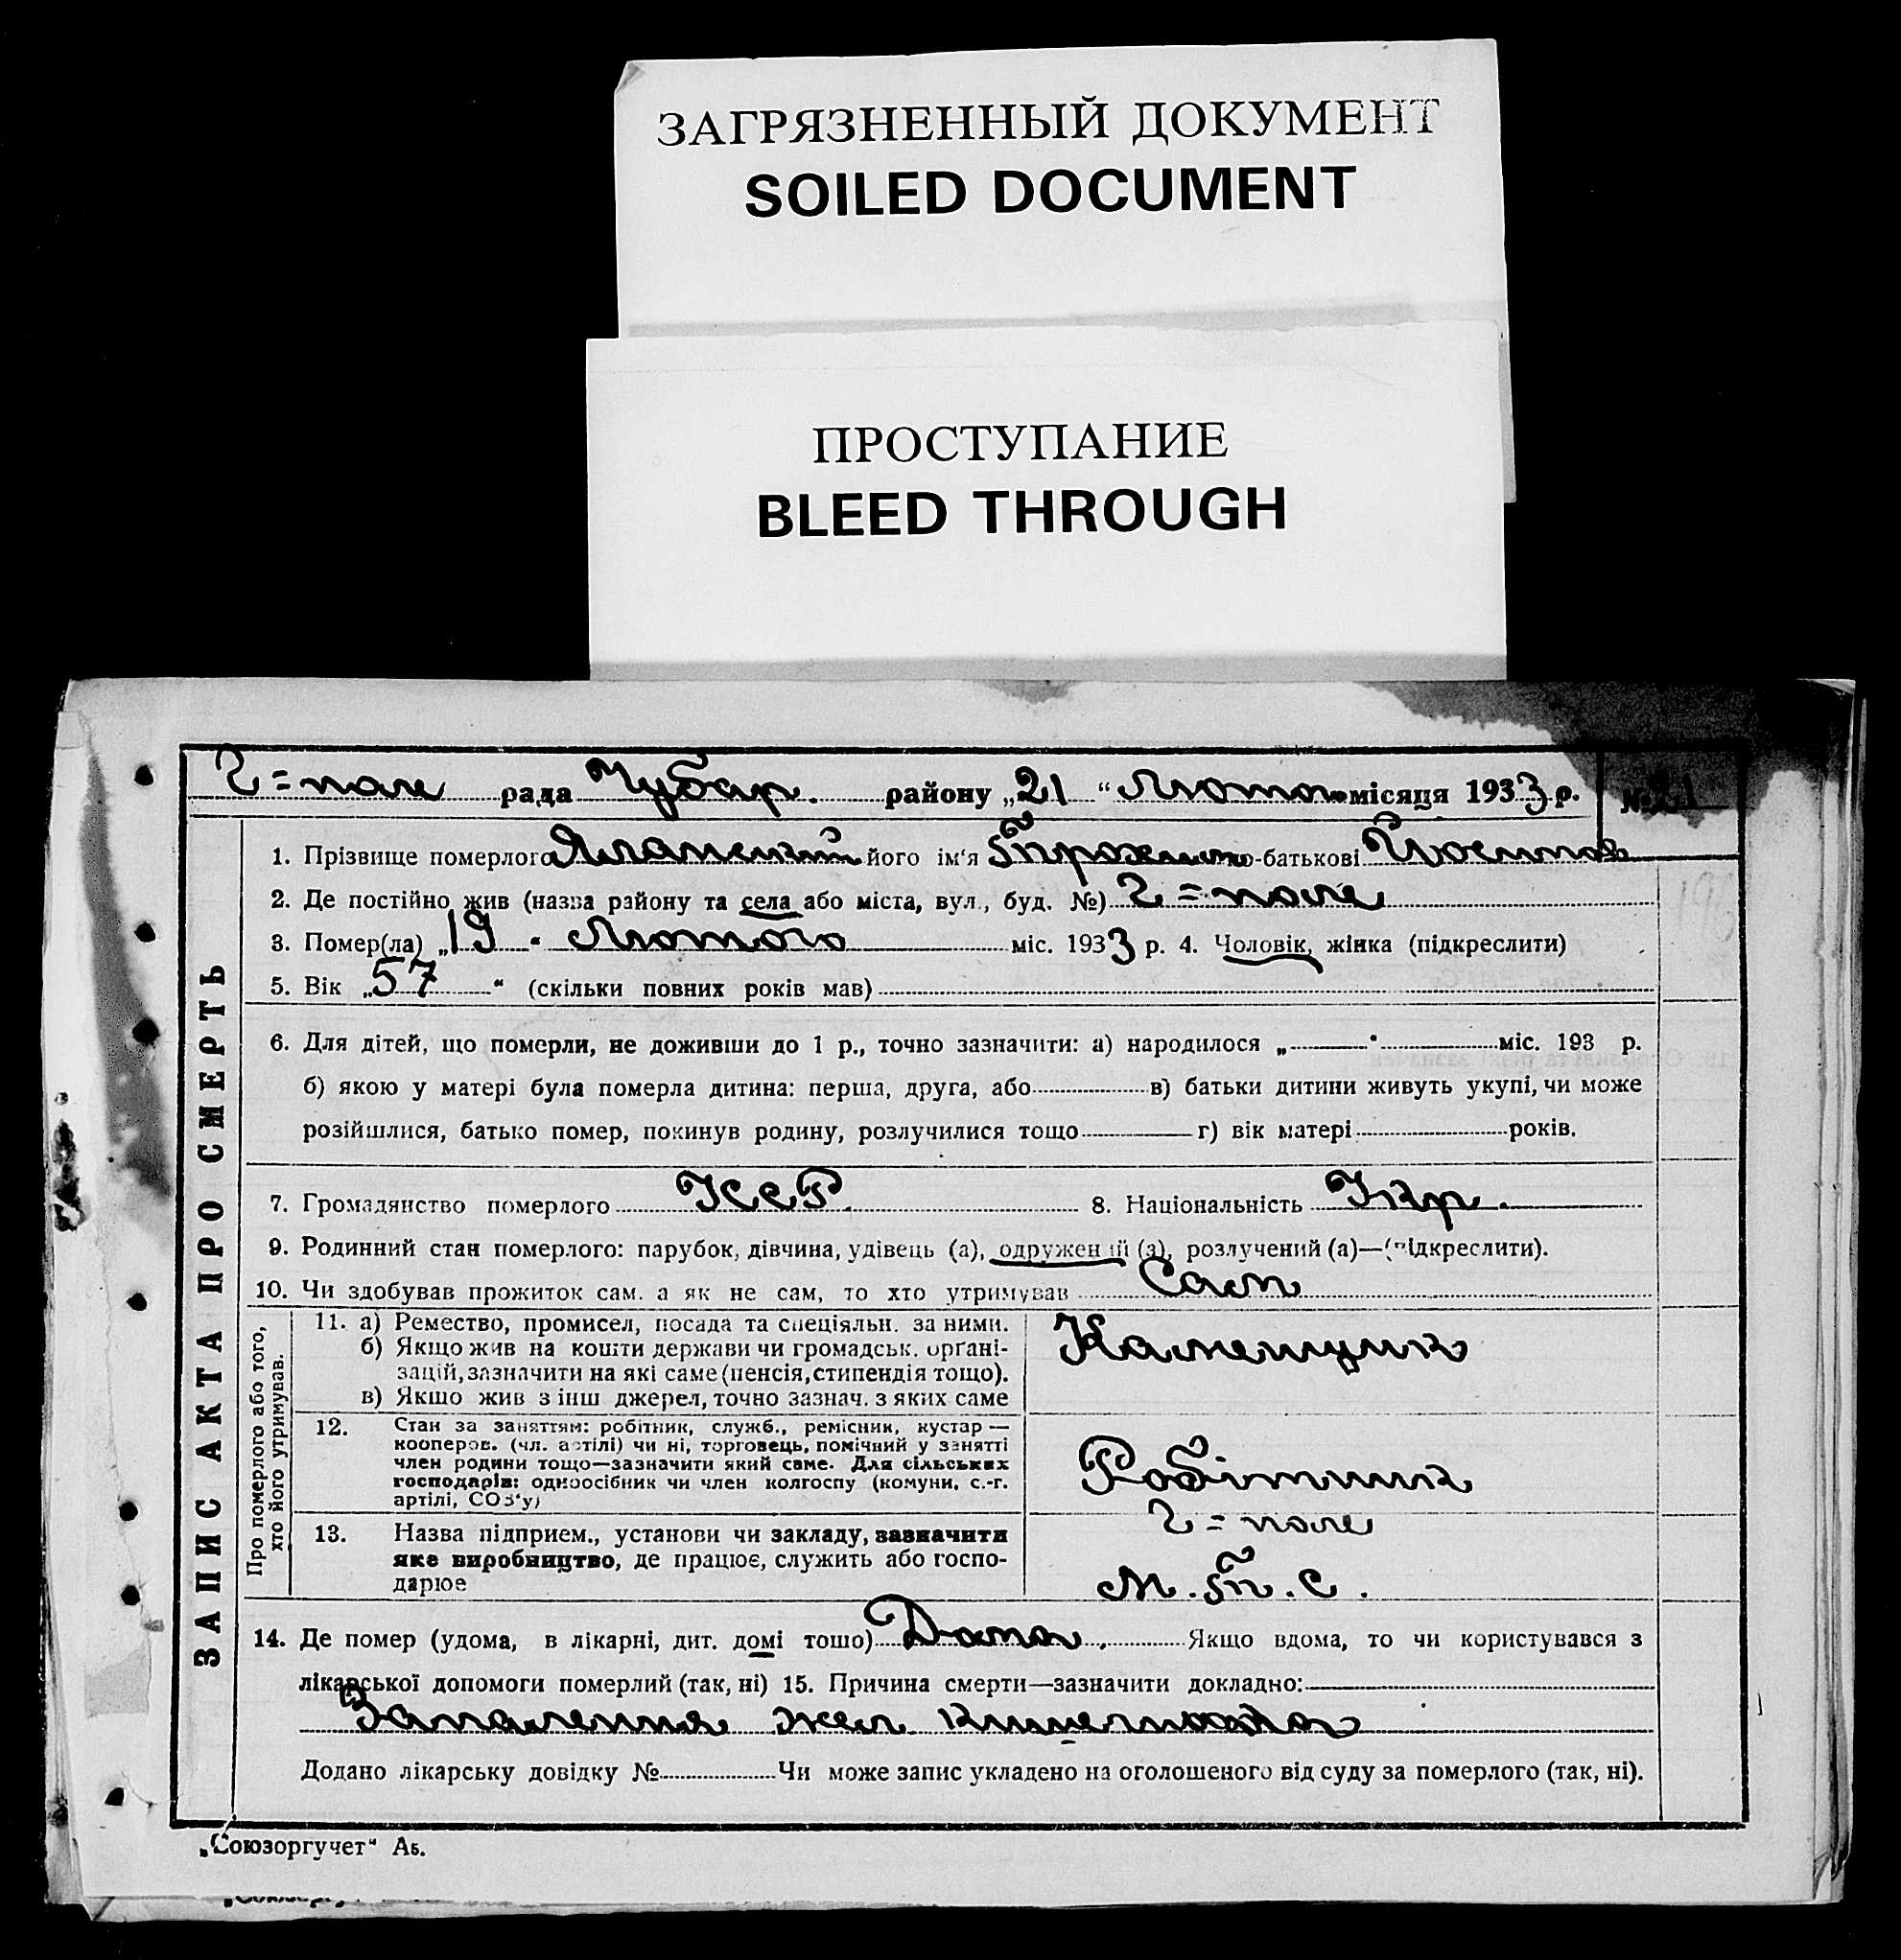 ЗАГРЯЗНЕННЫЙ ДОКУМЕНТ
SOILED DOCUMENT
ПРОСТУПАНИЕ
BLEED THROUGH
Г=поле рада Чубар. району „21“ Лютого місяця 1933 р. № 21
ЗАПИС АКТА ПРО СМЕРТЬ
1. Прізвище померлого його ім‘я по-батькові
2. Де постійно жив (назва району та села або міста, вул., буд. №) Г=поле
3. Помер(ла) „19“ Лютого міс. 1933 р. 4. Чоловік, жінка (підкреслити)
5. Вік „57“ (скільки повних років мав)
6. Для дітей, що померли, не доживши до 1 р., точно зазначити: а) народилося „ “ міс. 193 р.
б) якою у матері була померла дитина: перша, друга, або в) батьки дитини живуть укупі, чи може
розійшлися, батько помер, покинув родину, розлучилися тощо г) вік матері років.
7. Громадянство померлого УССР. 8. Національність Укр.
9. Родинний стан померлого: парубок, дівчина, удівець (а), одружений (а), розлучений (а)—(підкреслити).
10. Чи здобував прожиток сам. а як не сам, то хто утримував Сам
Про померлого або того, хто його утримував.
11. а) Ремество, промисел, посада та спеціяльн. за ними.
б) Якщо жив на кошти держави чи громадськ. орґані-
зацій, зазначити на які саме (пенсія, стипендія тощо).
в) Якшо жив з інш джерел, точно зазнач. з яких саме
Каменщик
12. Стан за заняттям: робітник, служб., ремісник, кустар —
кооперов. (чл. артілі) чи ні, торговець, помічний у занятті
член родини тощо—зазначити який саме. Для сільських
господарів: одноосібник чи член колгоспу (комуни, с.-г.
артілі, СОЗ‘у)
Робітник
13. Назва підприєм., установи чи закладу, зазначити
яке виробництво, де працює, служить або госпо-
дарює
Г=поле
М.Т.С.
14. Де помер (удома, в лікарні, дит. домі тошо) Дома. Якщо вдома, то чи користувався з
лікарської допомоги померлий (так, ні) 15. Причина смерти—зазначити докладно:
Запалення
Додано лікарську довідку № Чи може запис укладено на оголошеного від суду за померлого (так, ні).
„Союзоргучет“ Аб.